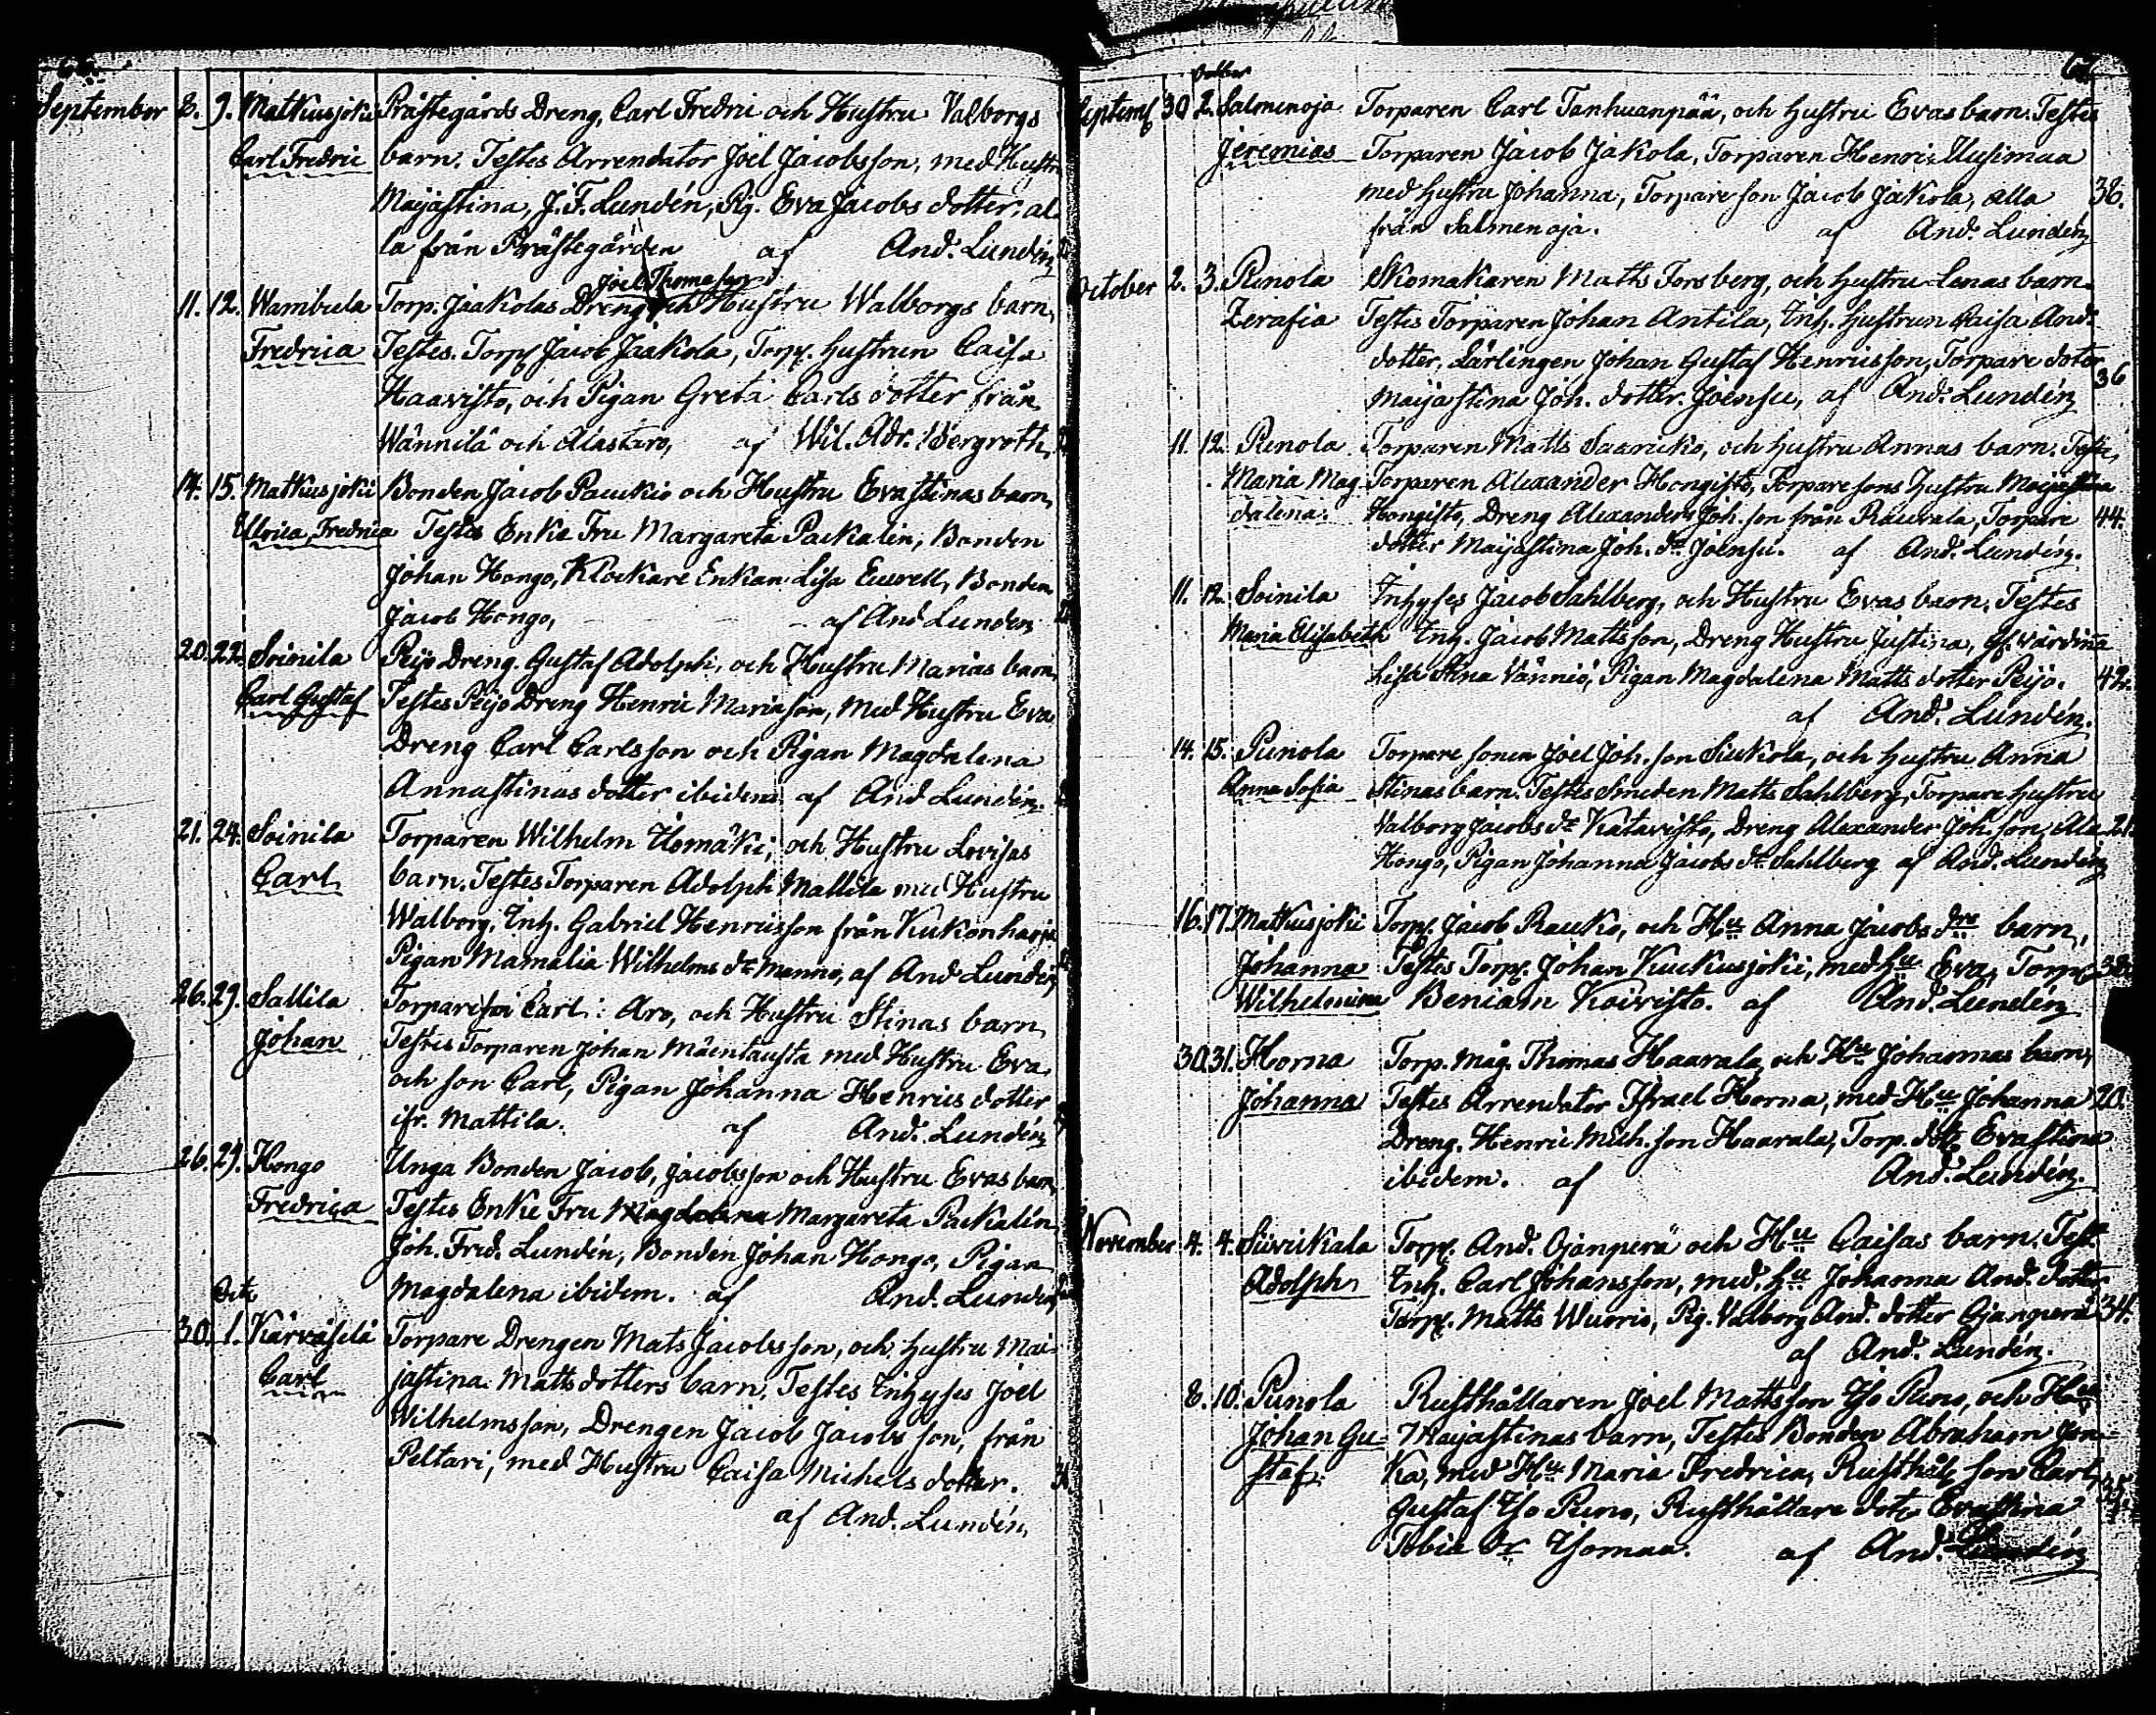 September 8. 9. Matkusjoki Prästegårds Dreng, Carl Fredric och Hustru Valborgs
Carl Fredric barn. Testes Arrendator Joel Jacobsson, med Hustru
Maijastina, J. F. Lundén, Pig. Eva Jacobs dotter, al-
la från Prästegården af And. Lundén
Joel Thomasson
11. 12. Wambula Torp. Jaakolas Dreng och Hustru Walborgs barn,
Fredrica Testes. Torp. Jacob Jaakola, Torp. hustrun Caisa
Haavisto, och Pigan Greta Carls dotter från
Wännilä och Alastaro, af Wil. Adr. Bergroth,
14. 15. Matkusjoki Bonden Jacob Paukio och Hustru Evastinas barn,
Ulrica Fredrica Testes Enke Fru Margareta Packalin, Bonden
Johan Hongo, Klockare Enkan Lisa Eurell, Bonden
Jacob Hongo, af And Lundén
20. 22. Soinila Peijo Dreng. Gustaf Adolph, och Hustru Marias barn,
Carl Gustaf Testes Peijo Dreng Henric Mariasson, med Hustru Eva
Dreng Carl Carlsson och Pigan Magdalena
Annastinas dotter ibidem af And Lundén.
21. 24. Soinila Torparen Wilhelm Ylömäki, och Hustru Lovisas
Carl barn. Testes Torparen Adolph Mattila med Hustru
Walborg, Inh. Gabriel Henricsson från Kukonharja
Pigan Mamalia Wilhelms dr Manno, af And Lundén
26. 29. Sallila Torpareson Carl Aro, och Hustru Stinas barn
Johan Testes Torparen Johan Mäentausta med Hustru Eva,
och son Carl, Pigan Johanna Henrics dotter
ifr. Mattila. af And. Lundén
26. 29. Hongo Unga Bonden Jacob, Jacobsson och Hustru Evas barn,
Fredrica Testes Enke Fru Magdalena Margareta Packalén,
Joh. Fred. Lundén, Bonden Johan Hongo, Pigan
Magdalena ibidem. af And. Lundén
30. 1. Kärväselä Torpare Drengen Mats Jacobsson, och hustru Mai-
Carl jastina Matts dotters barn, Testes Inhyses Joel
Wilhelmsson, Drengen Jacob Jacobsson, från
Peltari, med Hustru Caisa Michels dotter.
af And. Lundén
October
Septemb 30 2. Salmenoja Torparen Carl Tanhuanpää, och hustru Evas barn. Testes
Jeremias Torparen Jacob Jakola, Torparen Henric Uusimaa
med hustru Johanna, Torpare son Jacob Jakola, alla 38.
från Salmenoja. af And. Lundén
October 2. 3. Punola Skomakaren Matts Forsberg, och hustru Lenas barn.
Zerafia Testes Torparen Johan Antila, Inh. hustrun Caisa And.
dotter, Lärlingen Johan Gustaf Henricsson, Torpare doter
Maijastina Joh. dotter. Joensu, af And. Lundén 36
11. 12. Punola Torparen Matts Saaricko, och hustru Annas barn. Testes
Maria Mag- Torparen Alexander Hongisto, Torpare sons hustru Maijastina
dalena. Hongisto, Dreng Alexander Joh. son från Rauvala, Torpare 44.
dotter Maijastina Joh. dr Joensu. af And. Lundén.
11. 12. Soinila Inhyses Jacob Sahlberg, och Hustru Evas barn. Testes
Maria Elisabeth Inh. Jacob Mattsson, Dreng Hustru Justina, Gl. värdina
Lisa Stina Vänniö, Pigan Magdalena Matts dotter Peijo. 42.
af And. Lundén.
14. 15. Punola Torpare sonen Joel Joh. son Siukola, och hustru Anna
Anna Sofia Stinas barn. Testes Smeden Matts Sahlberg, Torpare hustru
Valborg Jacobs dr Katavisto, Dreng Alexander Joh. son, Ala 21.
Hongo, Pigan Johanna Jacobs dr Sahlberg af And. Lundén
16. 17. Matkusjoki Torp. Jacob Rauko, och Hu Anna Jacobs drs barn,
Johanna Testes Torp. Johan Kuukusjoki, med hu Eva, Torp. 38.
Wilhelmina Beniam Koivisto. af And. Lundén
30. 31. Horna Torp. Måg. Thomas Haarala, och Hu Johannas barn,
Johanna Testes Arrendator Israel Horna, med Hu Johanna 20.
Dreng. Henric Mich. son Haarala, Torp. dotr Evastina
ibidem. af And. Lundén.
November 4. 4. Suvickala Torp. And. Ojanperä och Hu Caisas barn. Test.
Adolph Inh. Carl Johansson, med hu Johanna And. dotter
Torp. Matts Wuorio, Pig. Valborg And. dotter Ojanperä 34.
af And. Lundén.
8. 10. Punola Rusthållaren Joel Mattsson Yso Puno, och Hus
Johan Gu- Maijastinas barn, Testes Bonden Abraham Jon-
staf. ka, med Hu Maria Fredrica, Rusthåll. son Carl, 35
Gustaf Yso Puno, Rusthållare dotr Evastina
Tobia dr Ysomaa. af And. Lundén